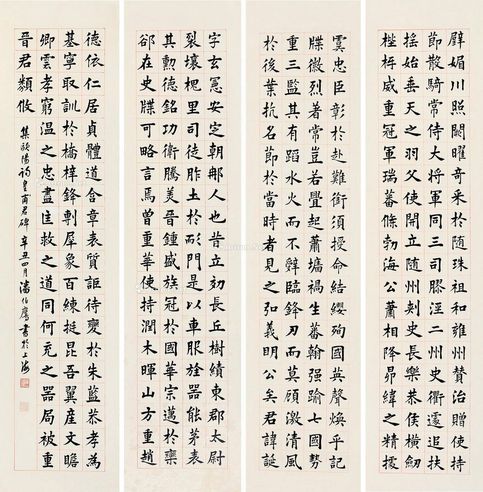 璧媚川照闕曜奇采於随珠祖和雍州贊治贈使持
節散騎常侍大將軍同三司膠涇二州史衢遽追扶
搖始垂天之羽父使開立随州刺史長樂恭侯橫劒
桎梏威重冠軍瑞蕃條渤海公蕭相降昴緯之精據
虞忠臣彰於赴難銜須授命結纓殉國英聲煥乎記
牒徽烈著常豈若釁起蕭墻禍生蕃翰強踰七國勢
重三監其有蹈水火而不辭臨鋒刃而莫顧激清風
於後葉抗名節於當時者見之弘義明公矣君諱誕
字玄憲安定朝那人也昔立効長丘樹績東郡太尉
裂壤槐里司徒胙土於耏門是以車服旌器能茅表
其勲德銘功衛騰美晉鍾盛族冠於國華宗邁於欒
郤在史牒可略言焉曾重華使持潤木暉山方重趙
德依仁居貞體道含章表質詎待變於朱藍恭孝為
基寧取訓於橋梓鋒剸犀象百練挺昆吾翼產文瞻
卿雲孝窮溫之忠盡匡救之道同何充之器局被重
晉君類攸
集歐陽詢皇甫君碑辛丑四月潘伯鷹書於上海